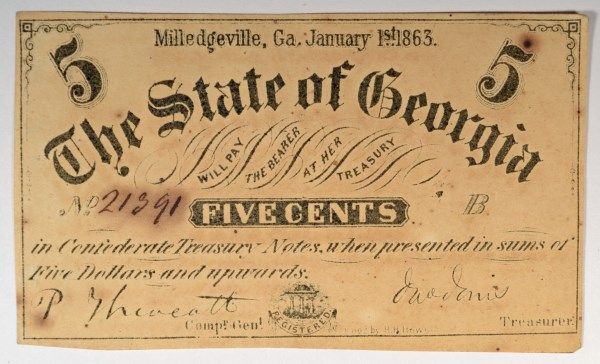 5 Milledgeville, Ga. January 1st 1863. 5
The State of Georgia
WILL PAY THE BEARER AT HER TREASURY
No 21391 FIVE CENTS B
in Confederate Treasury Notes, when presented in sums of
Five Dollars and upwards.
P Thweatt Jno Jones
Compr. Genl. REGISTERED Treasurer